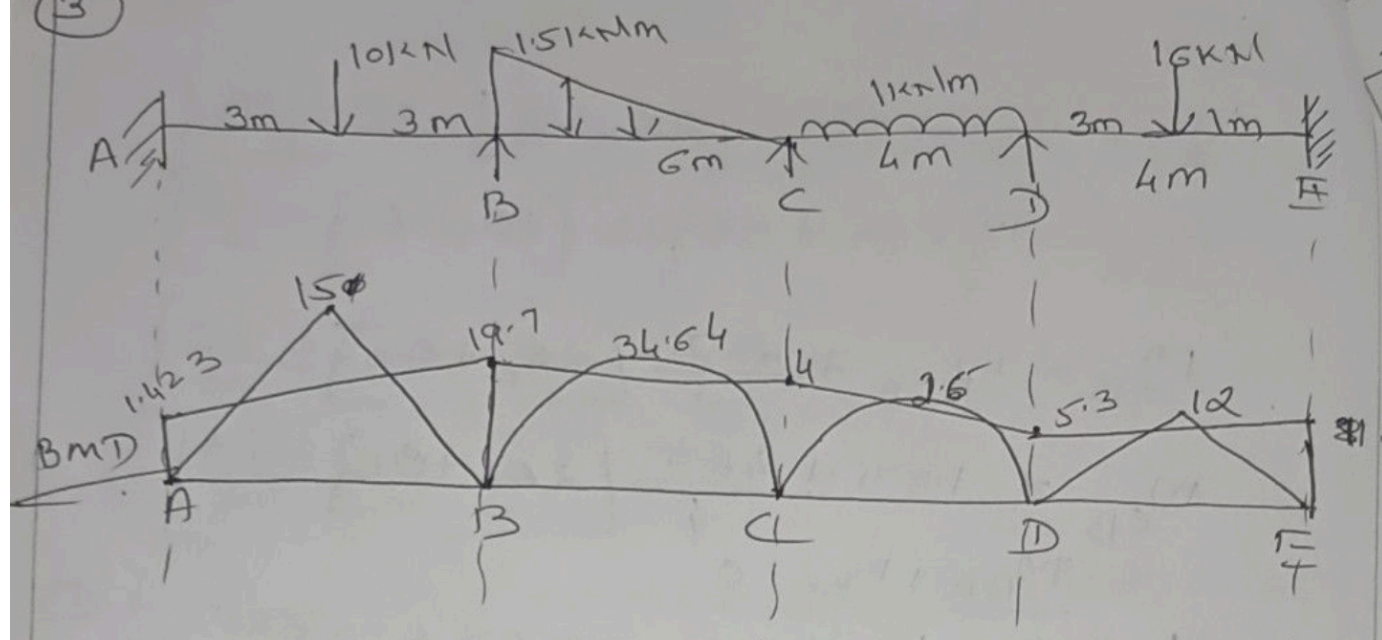 3
10KN 1.5KN/m 1KN/m 16KN
A 3m 3m 6m 4m 3m 1m
4m
B C D E
15 19.7 34.64 4 2.6 5.3 12
1.423
BMD
A B C D E